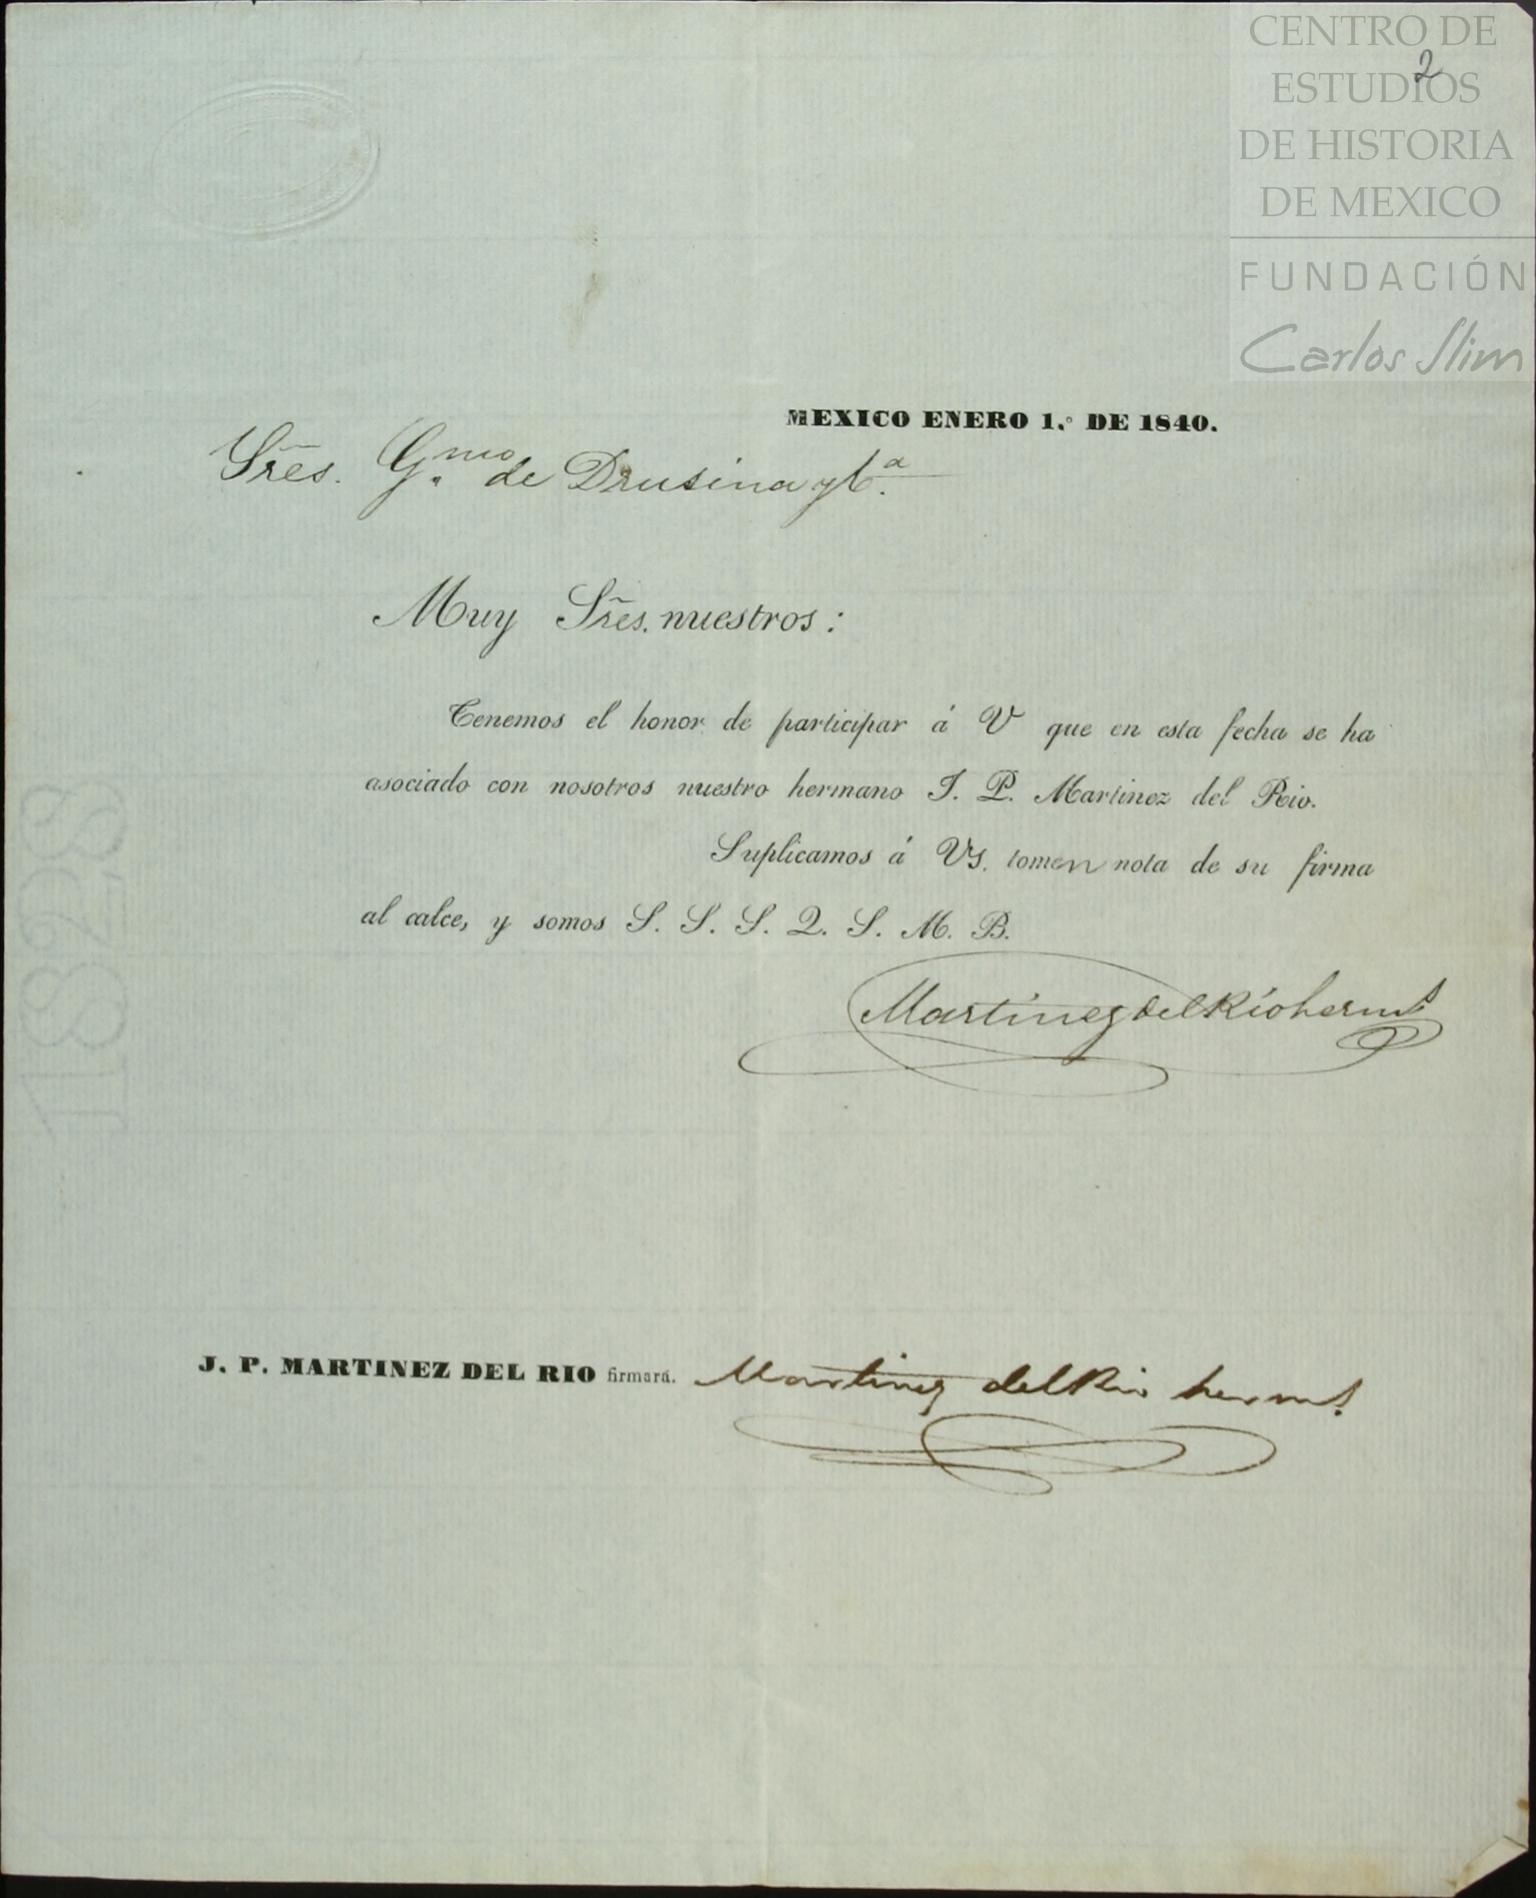 CENTRO DE
ESTUDIOS
DE HISTORIA
DE MEXICO
FUNDACIÓN
Carlos Slim
2
MEXICO ENERO 1.º DE 1840.
Sres. G.mo de Drusina y C.a
Muy Sres. nuestros:
Tenemos el honor de participar á V que en esta fecha se ha
asociado con nosotros nuestro hermano J. P. Martinez del Rio.
Suplicamos á VS. tomen nota de su firma
al calce, y somos S. S. S. Q. S. M. B.
Martinez del Rio herms
J. P. MARTINEZ DEL RIO firmará. Martinez del Rio herms.
1828